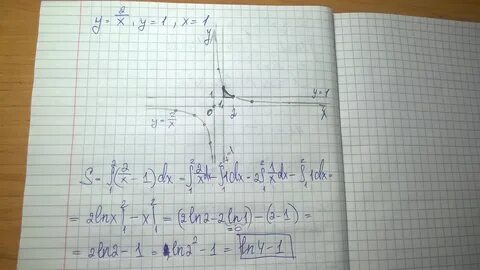 y = 2/x, y = 1, x = 1
y
1
y = 1
0
1
2
x
y = 2/x
S = ∫₁²(2/x - 1)dx = ∫₁² 2/x dx - ∫₁² 1dx = 2∫₁² 1/x dx - ∫₁² 1dx =
= 2lnx|₁² - x|₁² = (2ln2 - 2ln1) - (2-1) =
=0
= 2ln2 - 1 = ln2² - 1 = ln4 - 1